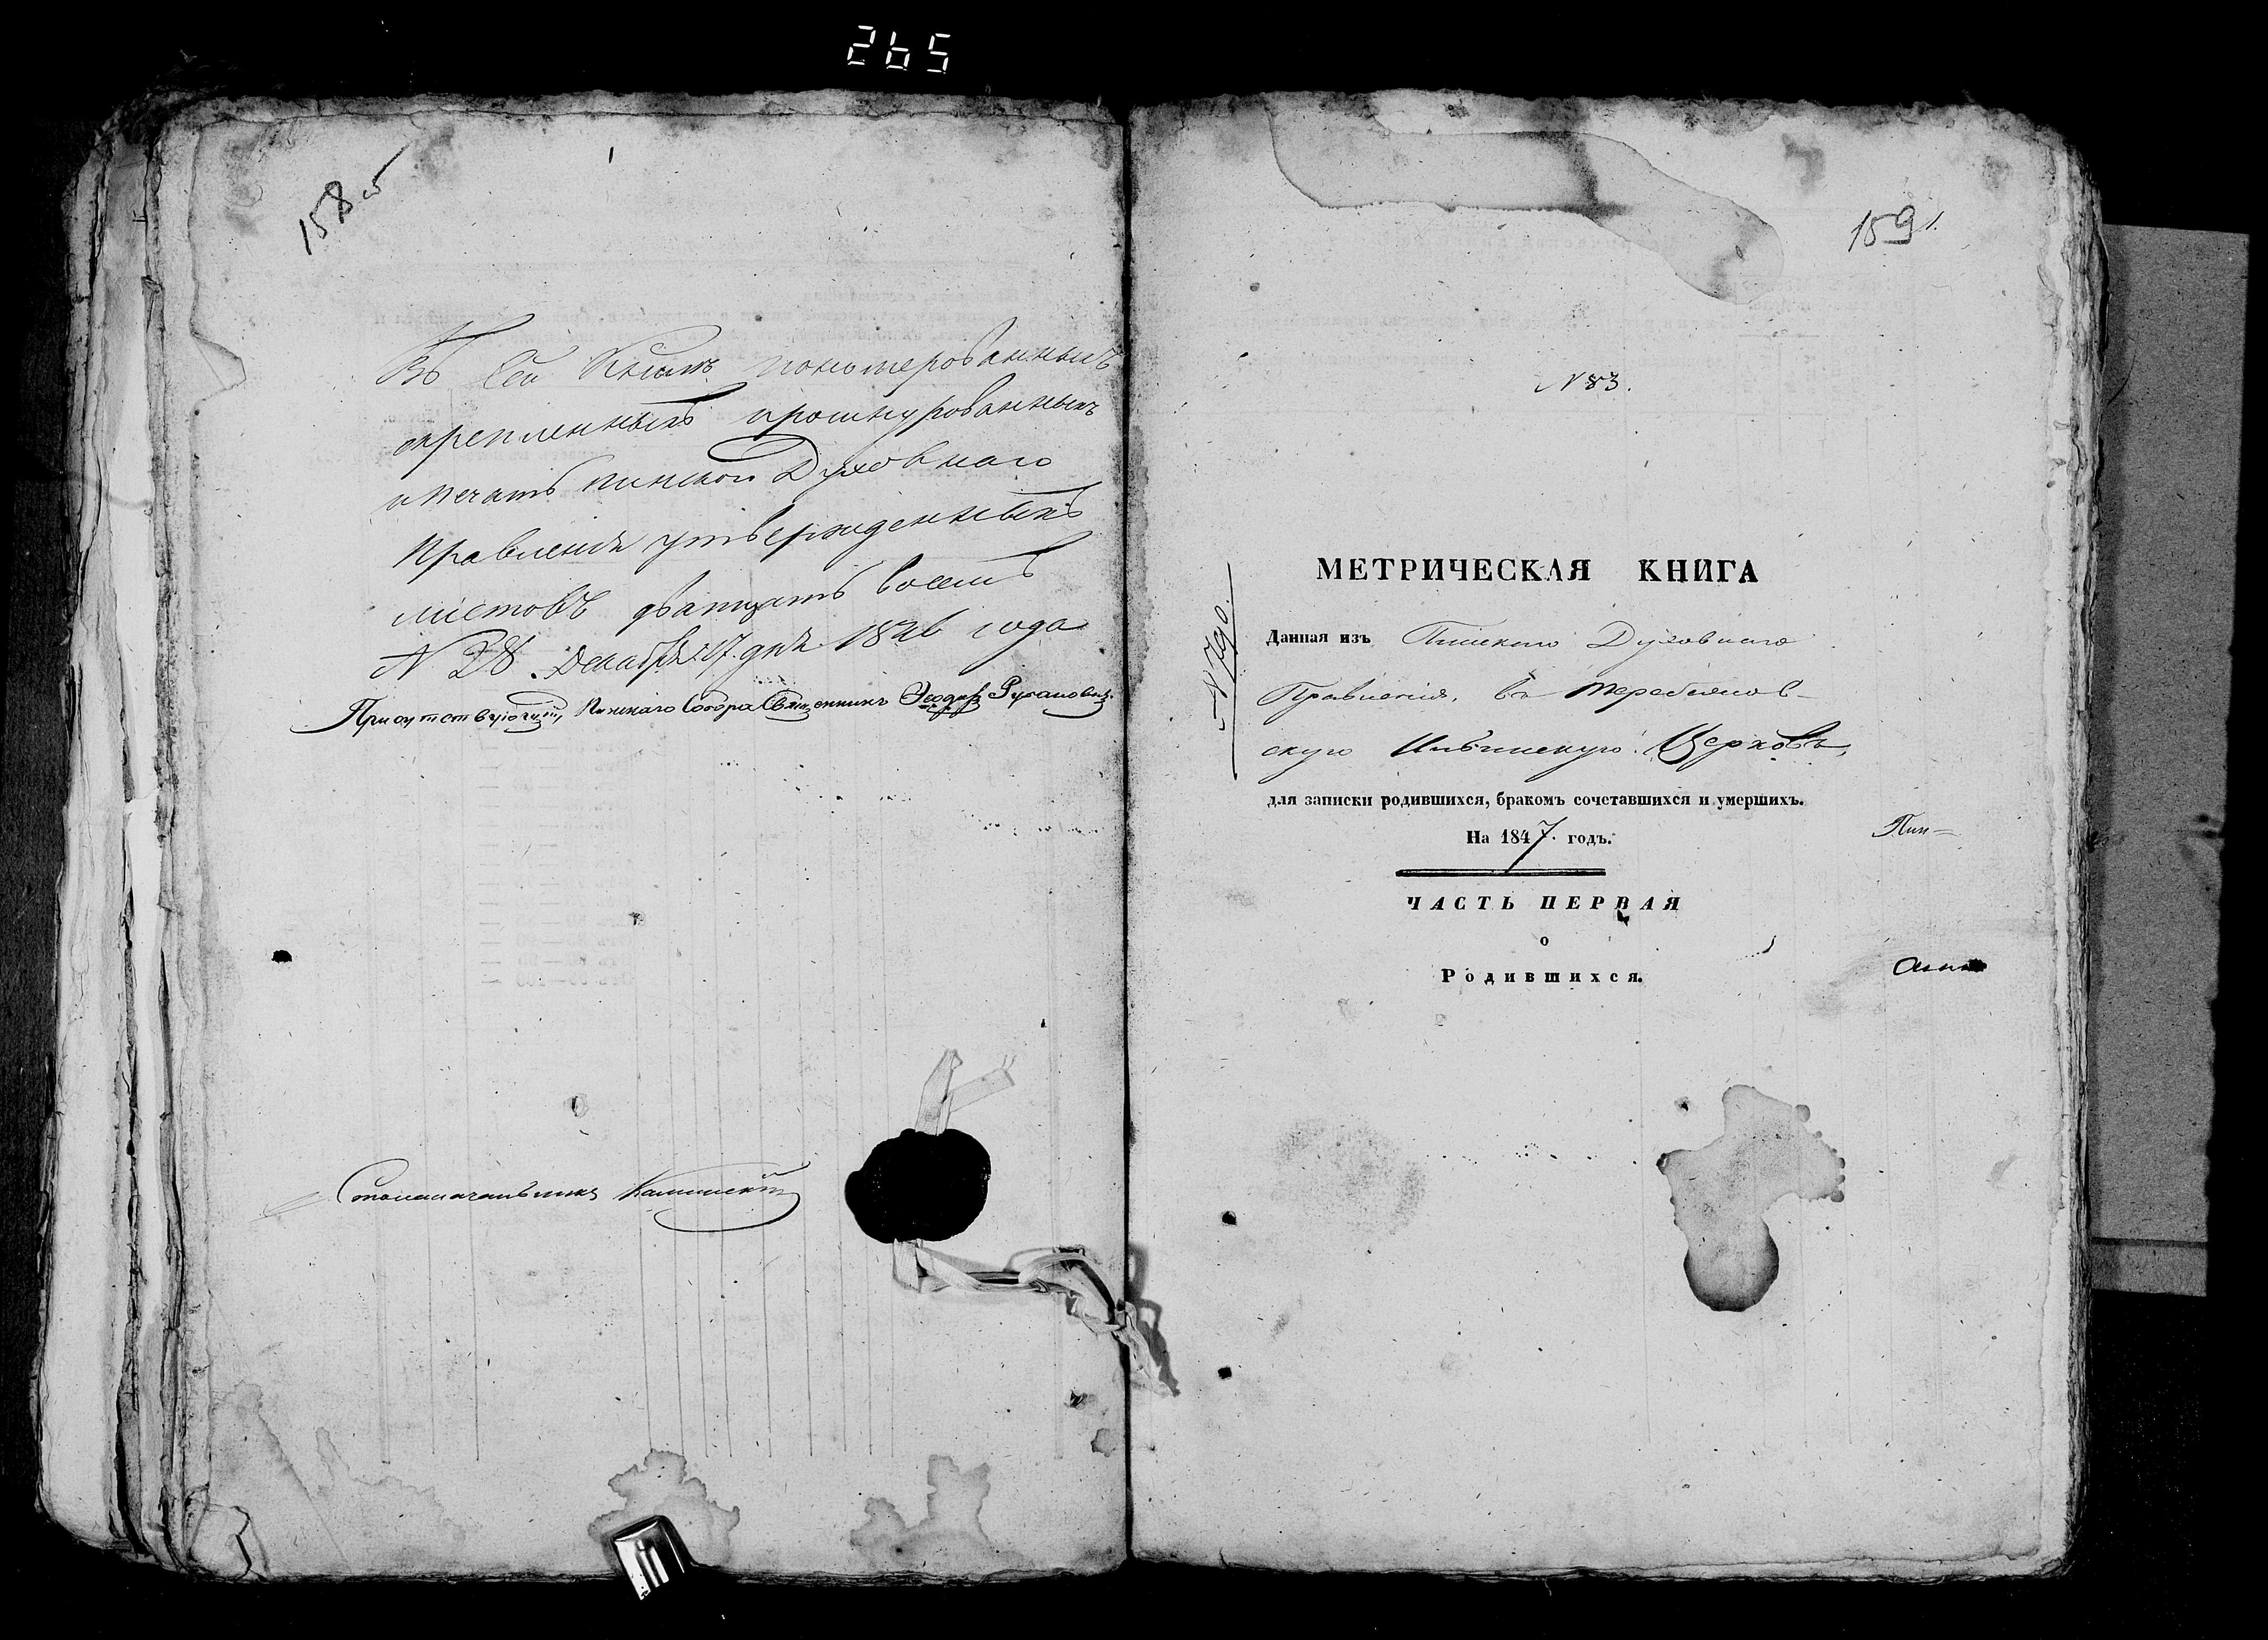 265
158 об
Въ сей Книгѣ пономерованныхъ
скрепленныхъ прошнурованныхъ
и печатъ Пинскаго Духовнаго
Правленія утвержденныхъ
листовъ дватцать восемъ
N 28. Декабря 17 дня 1846 года
Присутствующій, Пинскаго Собора Священникъ Ѳеодоръ Русановичъ
Столоначальникъ Каминскій
159
N 83.
N 790.
МЕТРИЧЕСКАЯ КНИГА
Данная изъ Пинскаго Духовнаго
Правленія, въ Теребежов-
скую Ильинскую Церковь,
для записки родившихся, бракомъ сочетавшихся и умершихъ.
На 1847 годъ.
Пин=
ЧАСТЬ ПЕРВАЯ
о
Родившихся.